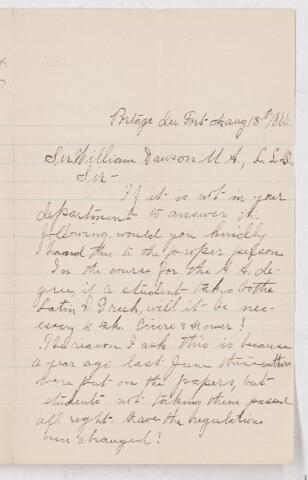 Portage du Fort Aug 13th/1888
Sir William Dawson M.A., L.L.D.,
Sir -
If it is not in your
department to answer the
following, would you kindly
hand this to the proper person
In the course for the A.A. de-
gree, if a student takes both
Latin & Greek, will it be nec-
essary to take Cicero & Homer?
The reason I ask this is because
a year ago last June these authors
were put on the papers, but
students not taking them passed
all right. Have the regulations
been changed?